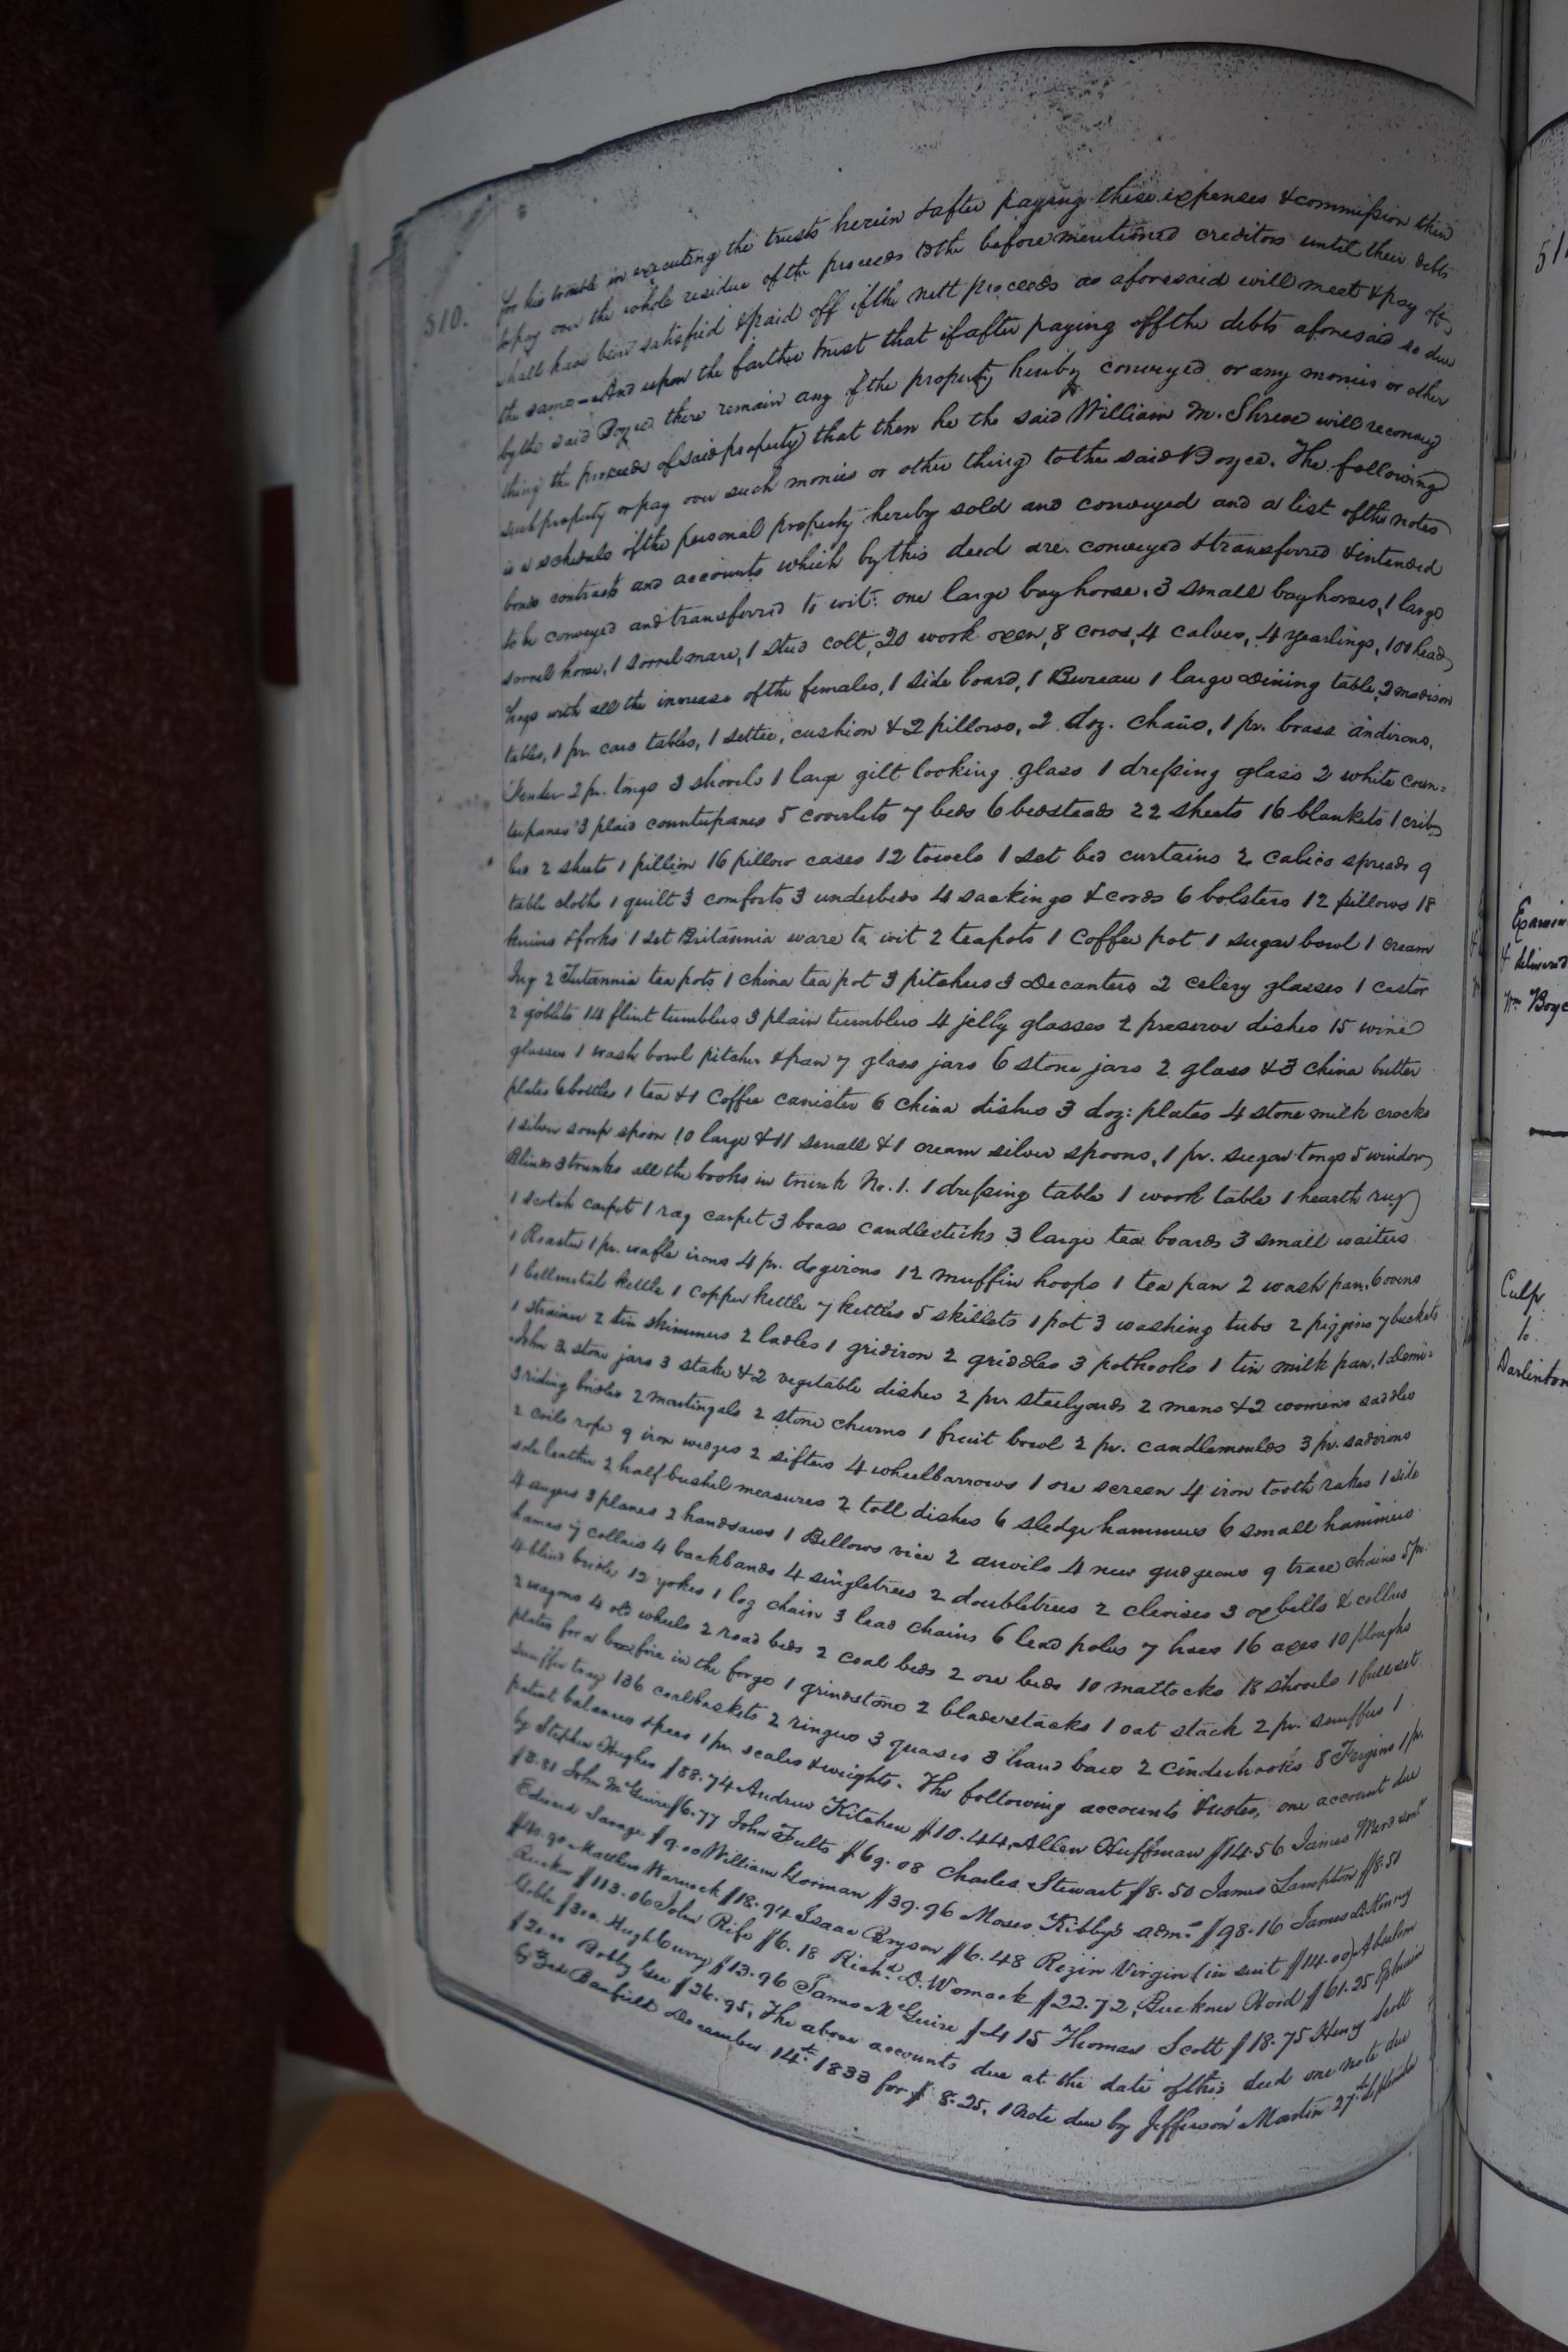 510.
for his trouble in executing the trusts herein & after paying these expenses & commission then
to pay over the whole residue of the proceeds to the before mentioned creditors until their debts
shall have been satisfied & paid off if the nett proceeds as aforesaid will meet & pay off
the same - And upon the farther trust that if after paying off the debts aforesaid so due
by the said Boyce there remain any of the property hereby conveyed or any monies or other
thing the proceeds of said property that then he the said William M. Shreve will reconvey
such property or pay over such monies or other thing to the said Boyce. The following
is a schedule of the personal property hereby sold and conveyed and a list of the notes
bonds contracts and accounts which by this deed are conveyed & transferred & intended
to be conveyed and transferred to wit: one large bay horse, 3 small bay horses, 1 large
sorrel horse, 1 sorrel mare, 1 stud colt, 20 work oxen, 8 cows, 4 calves, 4 yearlings, 100 head
hogs with all the increase of the females, 1 side board, 1 Bureau 1 large dining table, 2
tables, 1 pr. card tables, 1 settee, cushion & 2 pillows, 2 doz. chairs, 1 pr. brass andirons,
Fender 2 pr. tongs 3 shovels 1 large gilt looking glass 1 dressing glass 2 white coun=
terpanes 3 plaid counterpanes 5 coverlets 7 beds 6 bedsteads 22 sheets 16 blankets 1 crib
bed 2 sheets 1 pillion 16 pillow cases 12 towels 1 set bed curtains 2 calico spreads 9
table cloths 1 quilt 3 comforts 3 underbeds 4 sackings & cords 6 bolsters 12 pillows 18
knives & forks 1 set Britannia ware to wit 2 teapots 1 Coffee pot 1 sugar bowl 1 cream
Jug 2 Tutannia tea pots 1 china tea pot 3 pitchers 3 Decanters 2 celery glasses 1 castor
2 goblets 14 flint tumblers 3 plain tumblers 4 jelly glasses 2 preserve dishes 15 wine
glasses 1 wash bowl pitcher & pan 7 glass jars 6 stone jars 2 glass & 3 china butter
plates 6 bottles 1 tea & 1 Coffee canister 6 china dishes 3 doz: plates 4 stone milk crocks
1 silver soup spoon 10 large & 11 small & 1 cream silver spoons, 1 pr. sugar tongs 5 window
Blinds 3 trunks all the books in trunk No. 1. 1 dressing table 1 work table 1 hearth rug
1 scotch carpet 1 rag carpet 3 brass candlesticks 3 large tea boards 3 small waiters
1 Roaster 1 pr. waffle irons 4 pr. dogirons 12 muffin hoops 1 tea pan 2 wash pans, 6 ovens
1 bellmetal kettle 1 copper kettle 7 kettles 5 skillets 1 pot 3 washing tubs 2 piggins 7 buckets
1 strainer 2 tin skimmers 2 ladles 1 gridiron 2 griddles 3 pothooks 1 tin milk pan, 1 Demi=
John 3 stone jars 3 stake & 2 vegetable dishes 2 pr steelyards 2 mens & 2 womens saddles
3 riding bridles 2 martingals 2 stone churns 1 fruit bowl 2 pr. candlemoulds 3 pr. sadirons
2 coils rope 9 iron wedges 2 sifters 4 wheelbarrows 1 ore screen 4 iron tooth rakes 1 side
sole leather 2 half bushel measures 2 toll dishes 6 sledge hammers 6 small hammers
4 augers 3 planes 2 handsaws 1 Bellows vice 2 anvils 4 new gudgeons 9 trace chains 5 pr.
hames 7 collars 4 backbands 4 singletrees 2 doubletrees 2 clevises 3 ox bells & collars
4 blind bridles 12 yokes 1 log chain 3 lead chains 6 lead poles 7 hoes 16 axes 10 ploughs
2 wagons 4 old wheels 2 road beds 2 coal beds 2 ore beds 10 mattocks 18 shovels 1 full set
plates for a fire in the forge 1 grindstone 2 bladestacks 1 oat stack 2 pr. snuffers 1
snuffer tray 136 coalbaskets 2 ringers 3 3 hand bars 2 Cinderhooks 8 1 pr.
patent balances & peas 1 pr. scales & weights. The following accounts & notes, one account due
by Stephen Hughes $88.74 Andrew Kitchen $10.44, Allen Huffman $14.56 James Ward senr
$3.81 John McGuire $6.77 John Fults $69.08 Charles Stewart $8.50 James Lampton $8.51
Edward Savage $9.00 William Gorman $39.96 Moses Kibby's adm. $98.16 James
Matthew Warnock $18.94 Isaac Bryson $6.48 Rezin Virgin (in suit $14.00) Absolem
$113.06 John Rife $6.18 Richd. D. Womack $22.72, Buckner $61.25 Ephraim
Goble $3.00 Hugh Curry $13.96 James McGuire $4 15 Thomas Scott $18.75 Henry Scott
$20.00 Bobby Gee $26.95, The above accounts due at the date of this deed one note due
by Banfield December 14th 1833 for $8.25, 1 Note due by Jefferson Martin 27th September
Examin
& delivered
Wm Boyce
Culp
to
Darlinton